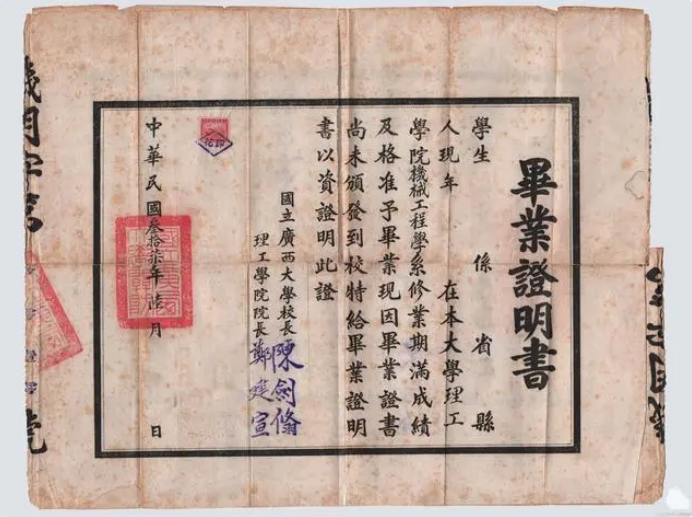 畢業證明書
學生 係 省 縣
人現年 在本大學理工
學院機械工程學系修業期滿成績
及格准予畢業現因畢業證書
尚未頒發到校特給畢業證明
書以資證明此證
國立廣西大學校長 陳劍脩
理工學院院長 鄭建宣
中華民國叁拾柒年陸月 日